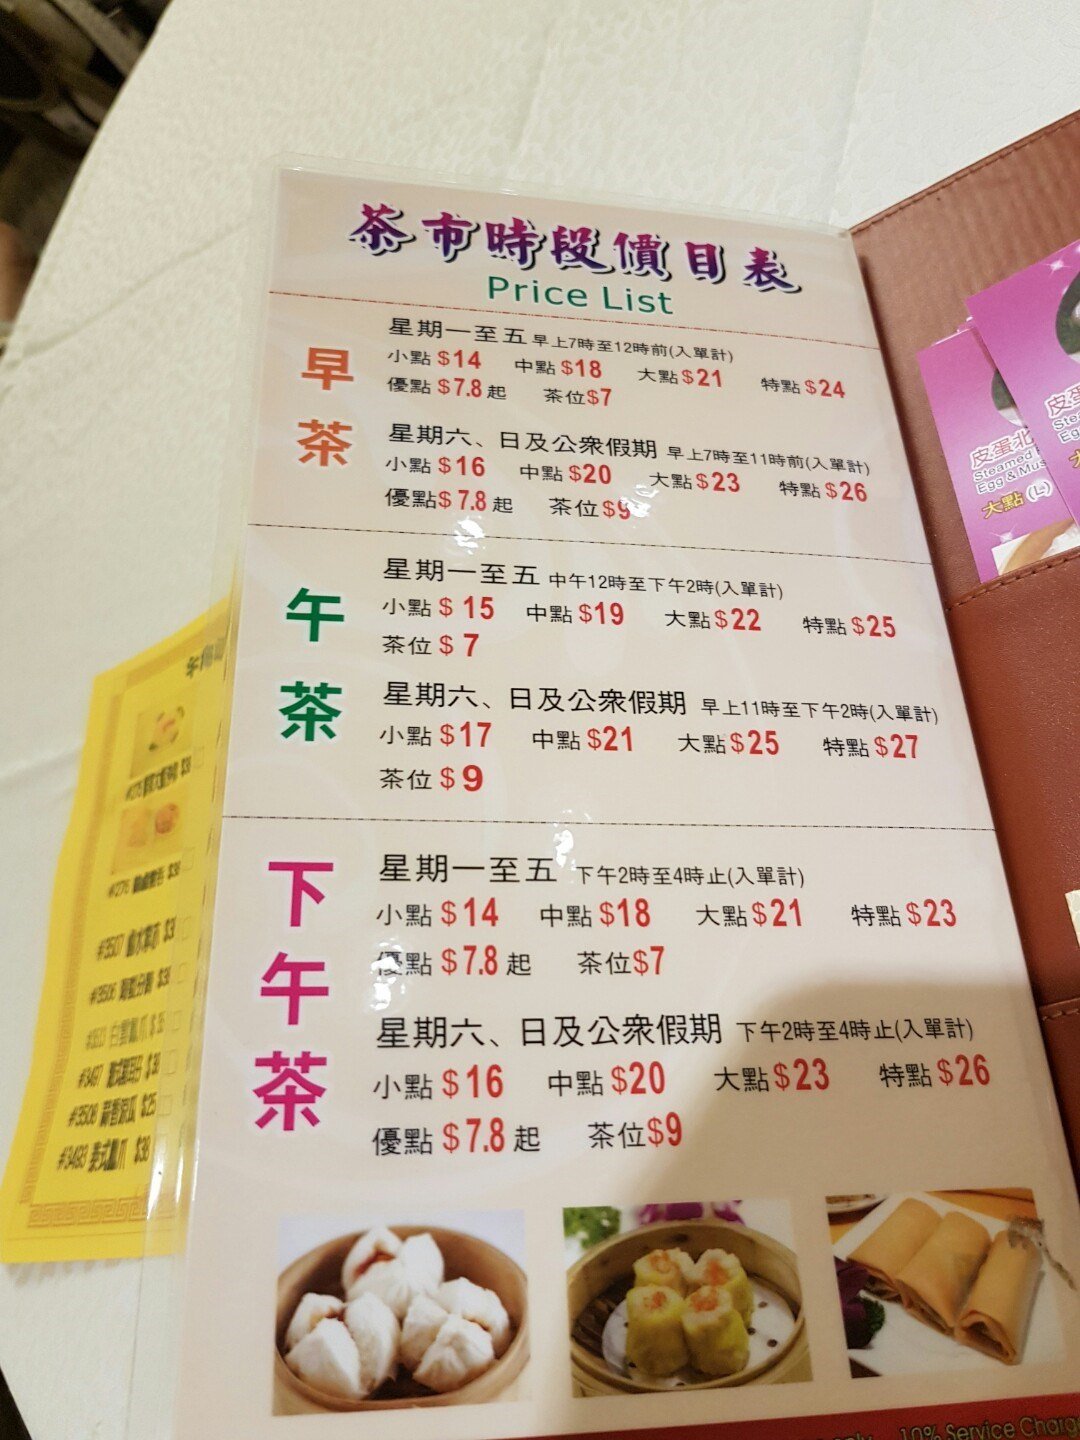 茶市時段價目表
Price List
早茶
星期一至五 早上7時至12時前(入單計)
小點 $14 中點 $18 大點 $21 特點 $24
優點 $7.8 起 茶位 $7
星期六、日及公衆假期 早上7時至11時前(入單計)
小點 $16 中點 $20 大點 $23 特點 $26
優點 $7.8 起 茶位 $9
午茶
星期一至五 中午12時至下午2時(入單計)
小點 $15 中點 $19 大點 $22 特點 $25
茶位 $7
星期六、日及公衆假期 早上11時至下午2時(入單計)
小點 $17 中點 $21 大點 $25 特點 $27
茶位 $9
下午茶
星期一至五 下午2時至4時止(入單計)
小點 $14 中點 $18 大點 $21 特點 $23
優點 $7.8 起 茶位 $7
星期六、日及公衆假期 下午2時至4時止(入單計)
小點 $16 中點 $20 大點 $23 特點 $26
優點 $7.8 起 茶位 $9
10% Service Charge
皮蛋北
Steamed
Egg & Mus
大點 (L)
皮蛋